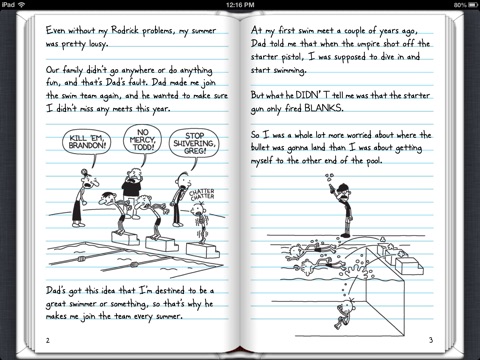 iPad
12:16 PM
80%
Even without my Rodrick problems, my summer
was pretty lousy.
Our family didn't go anywhere or do anything
fun, and that's Dad's fault. Dad made me join
the swim team again, and he wanted to make sure
I didn't miss any meets this year.
KILL 'EM,
BRANDON!
NO
MERCY,
TODD!
STOP
SHIVERING,
GREG!
CHATTER
CHATTER
Dad's got this idea that I'm destined to be a
great swimmer or something, so that's why he
makes me join the team every summer.
2
At my first swim meet a couple of years ago,
Dad told me that when the umpire shot off the
starter pistol, I was supposed to dive in and
start swimming.
But what he DIDN'T tell me was that the starter
gun only fired BLANKS.
So I was a whole lot more worried about where the
bullet was gonna land than I was about getting
myself to the other end of the pool.
3